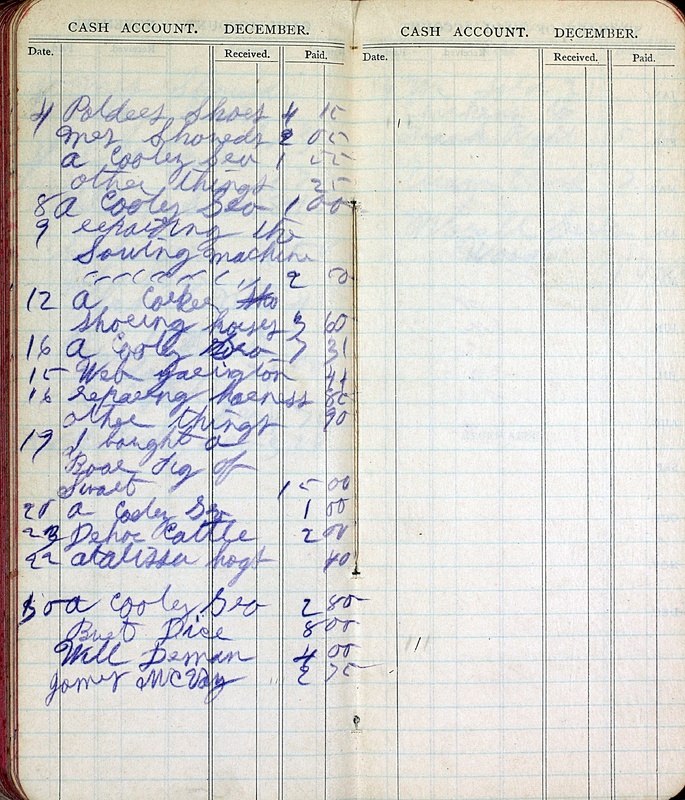 CASH ACCOUNT. DECEMBER.
Date. Received. Paid.
4 Poldees Shoes 4 15
2 05
a Cooley Seo 1
other things 25
8 a Cooley Seo 1 00
9 repairing the
Sowing machine
2 50
12 a
Shoeing horses 3 60
16 a Cooley Seo 7 31
15 Web 44
16 harness
other things 90
19 I bought a
Boar Pig of
15 00
a Cooley Seo 1 00
Cattle 2 00
22 hogs 40
30 a Cooley Seo 2 80
Burt Dice 8 00
Will Deman 4 00
McVay 2 75
CASH ACCOUNT. DECEMBER.
Date. Received. Paid.